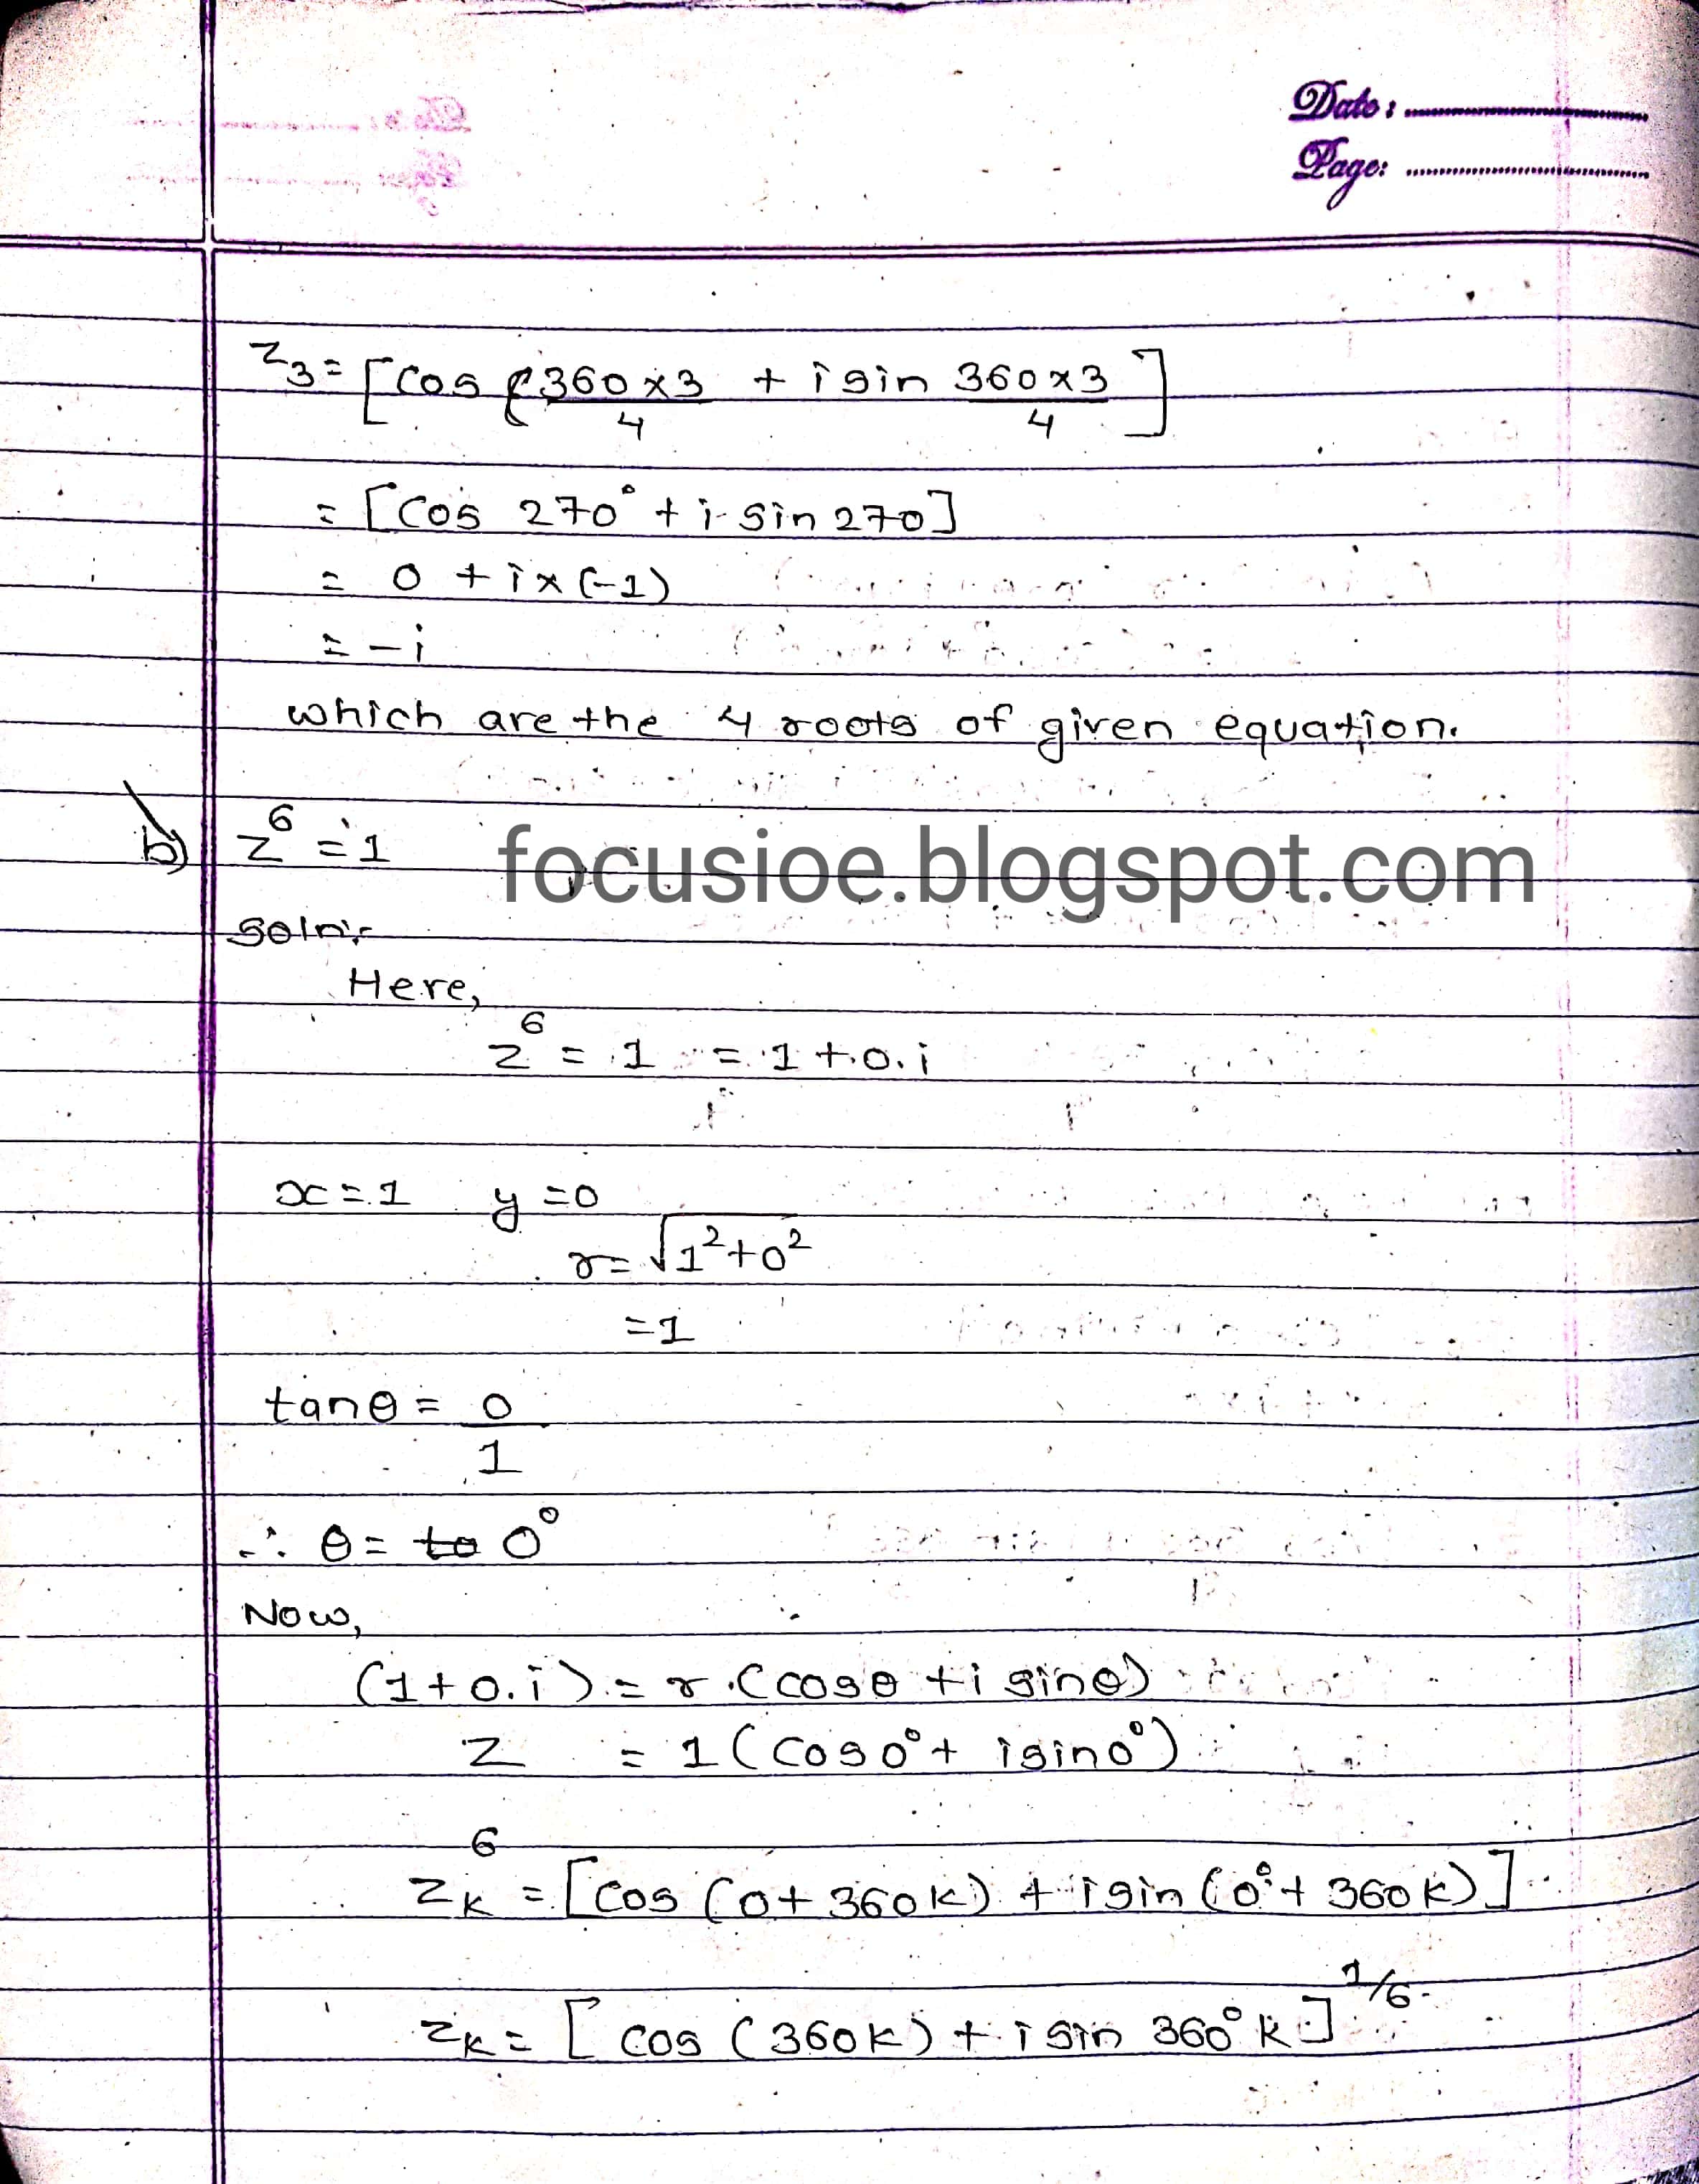 Date: ....................
Page: ....................
z₃ = [cos (360×3/4 + i sin 360×3/4]
= [cos 270° + i sin 270]
= 0 + i×(-1)
= -i
which are the 4 roots of given equation.
b) z⁶ = 1
focusioe.blogspot.com
Soln:-
Here,
z⁶ = 1 = 1 + 0.i
x = 1 y = 0
r = √1²+0²
= 1
tanθ = 0/1
∴ θ = to 0°
Now,
(1+0.i) = r.(cosθ + i sinθ)
z = 1 (cos0° + i sin0°)
z_k⁶ = [cos (0+360k) + i sin (0°+360k)]
z_k = [cos (360k) + i sin 360°k]^1/6